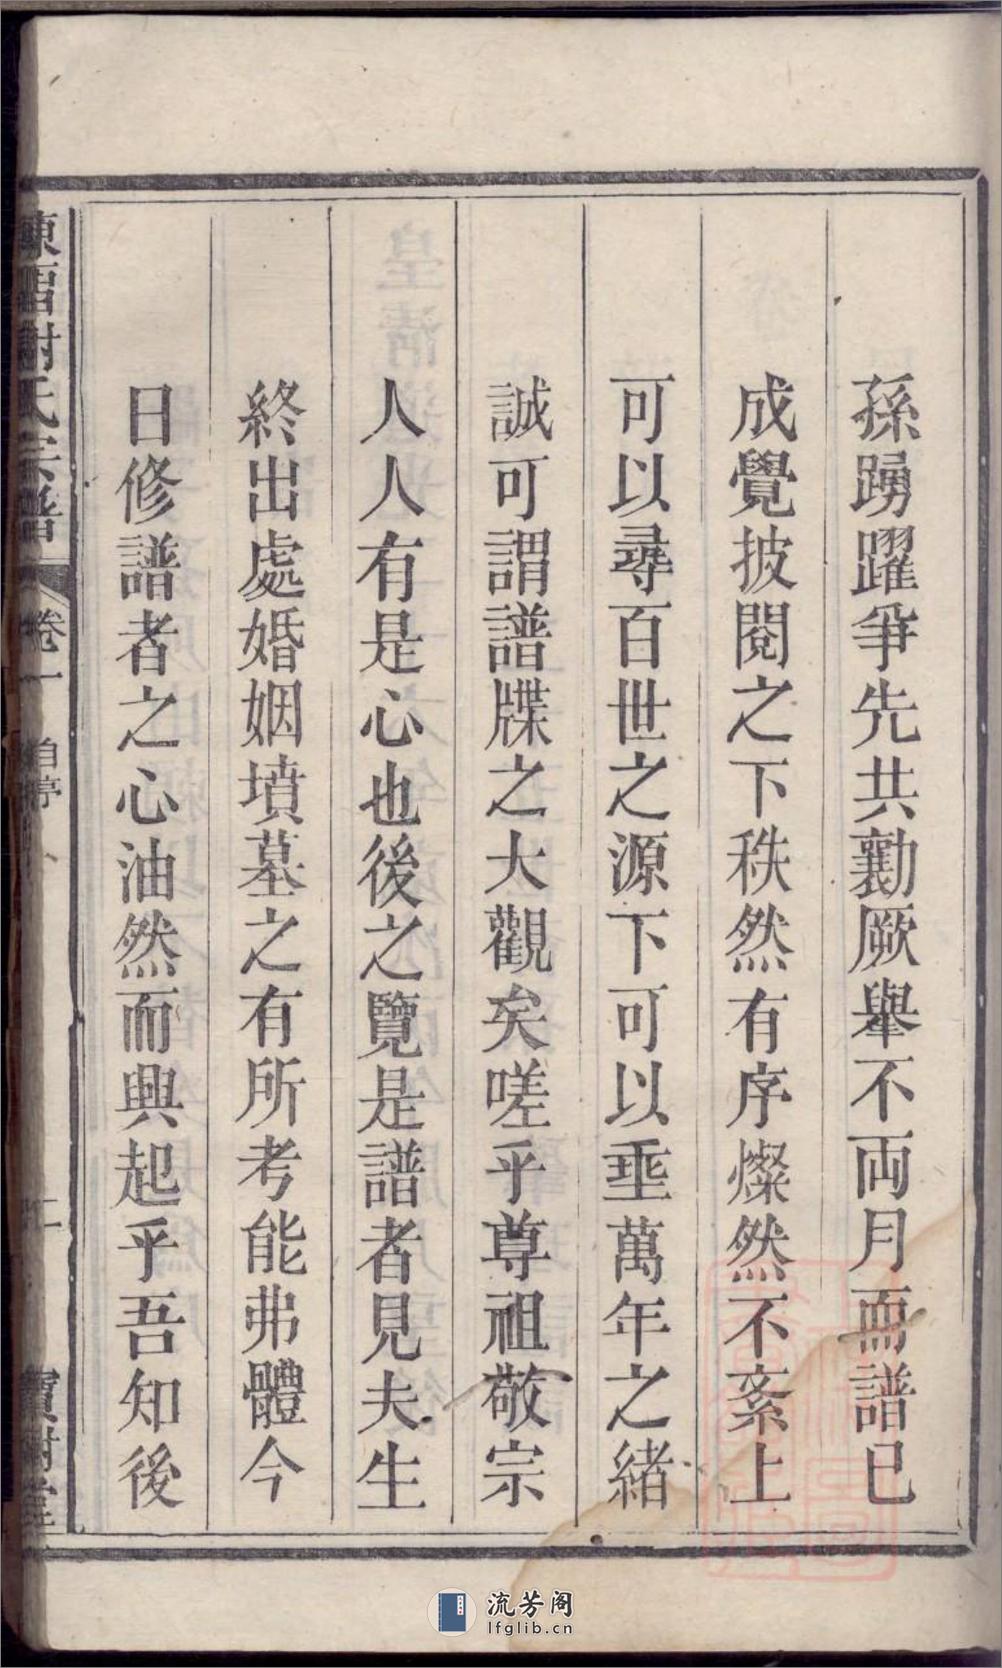 孫踴躍爭先共勷厥舉不両月而譜已
成覺披閱之下秩然有序燦然不紊上
可以尋百世之源下可以垂萬年之緒
誠可謂譜牒之大觀矣嗟乎尊祖敬宗
人人有是心也後之覽是譜者見夫生
終出處婚姻墳墓之有所考能弗體今
日修譜者之心油然而興起乎吾知後
謝氏宗譜
卷一
流芳阁
lfglib.cn